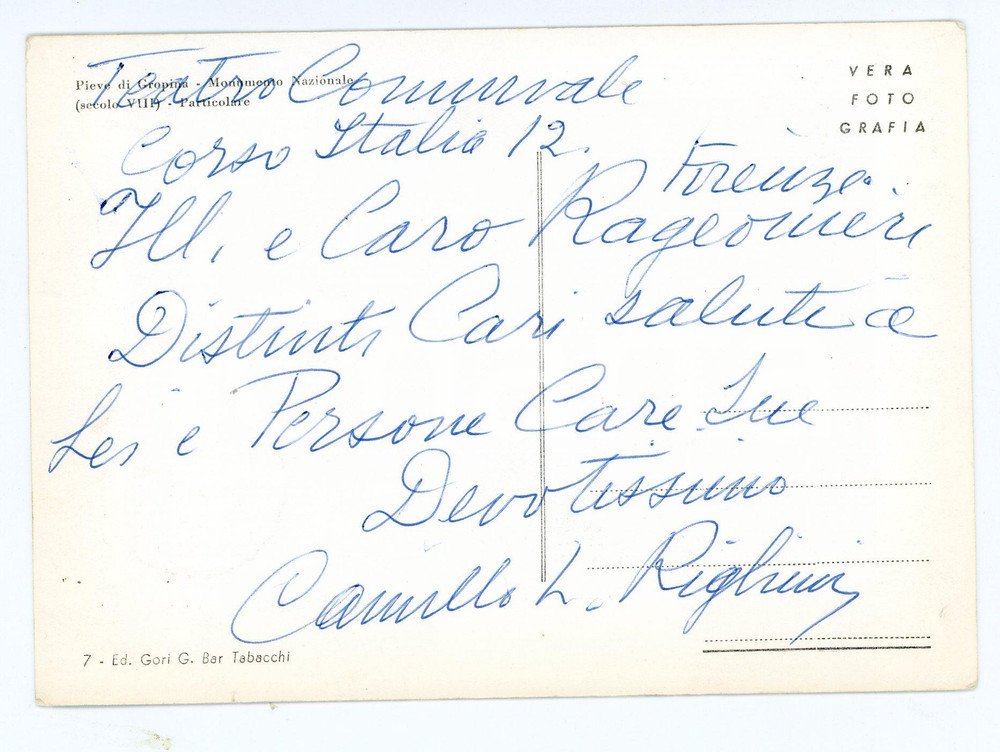 Pieve di Gropina - Monumento Nazionale
(secolo VIII) - Particolare
VERA
FOTO
GRAFIA
Teatro Comunale
Corso Italia 12.
Firenze.
Ill. e Caro Rageonieri
Distinti Cari saluti a
Lei e Persone Care Sue
Devotissimo
Camillo L. Righini
7 - Ed. Gori G. Bar Tabacchi